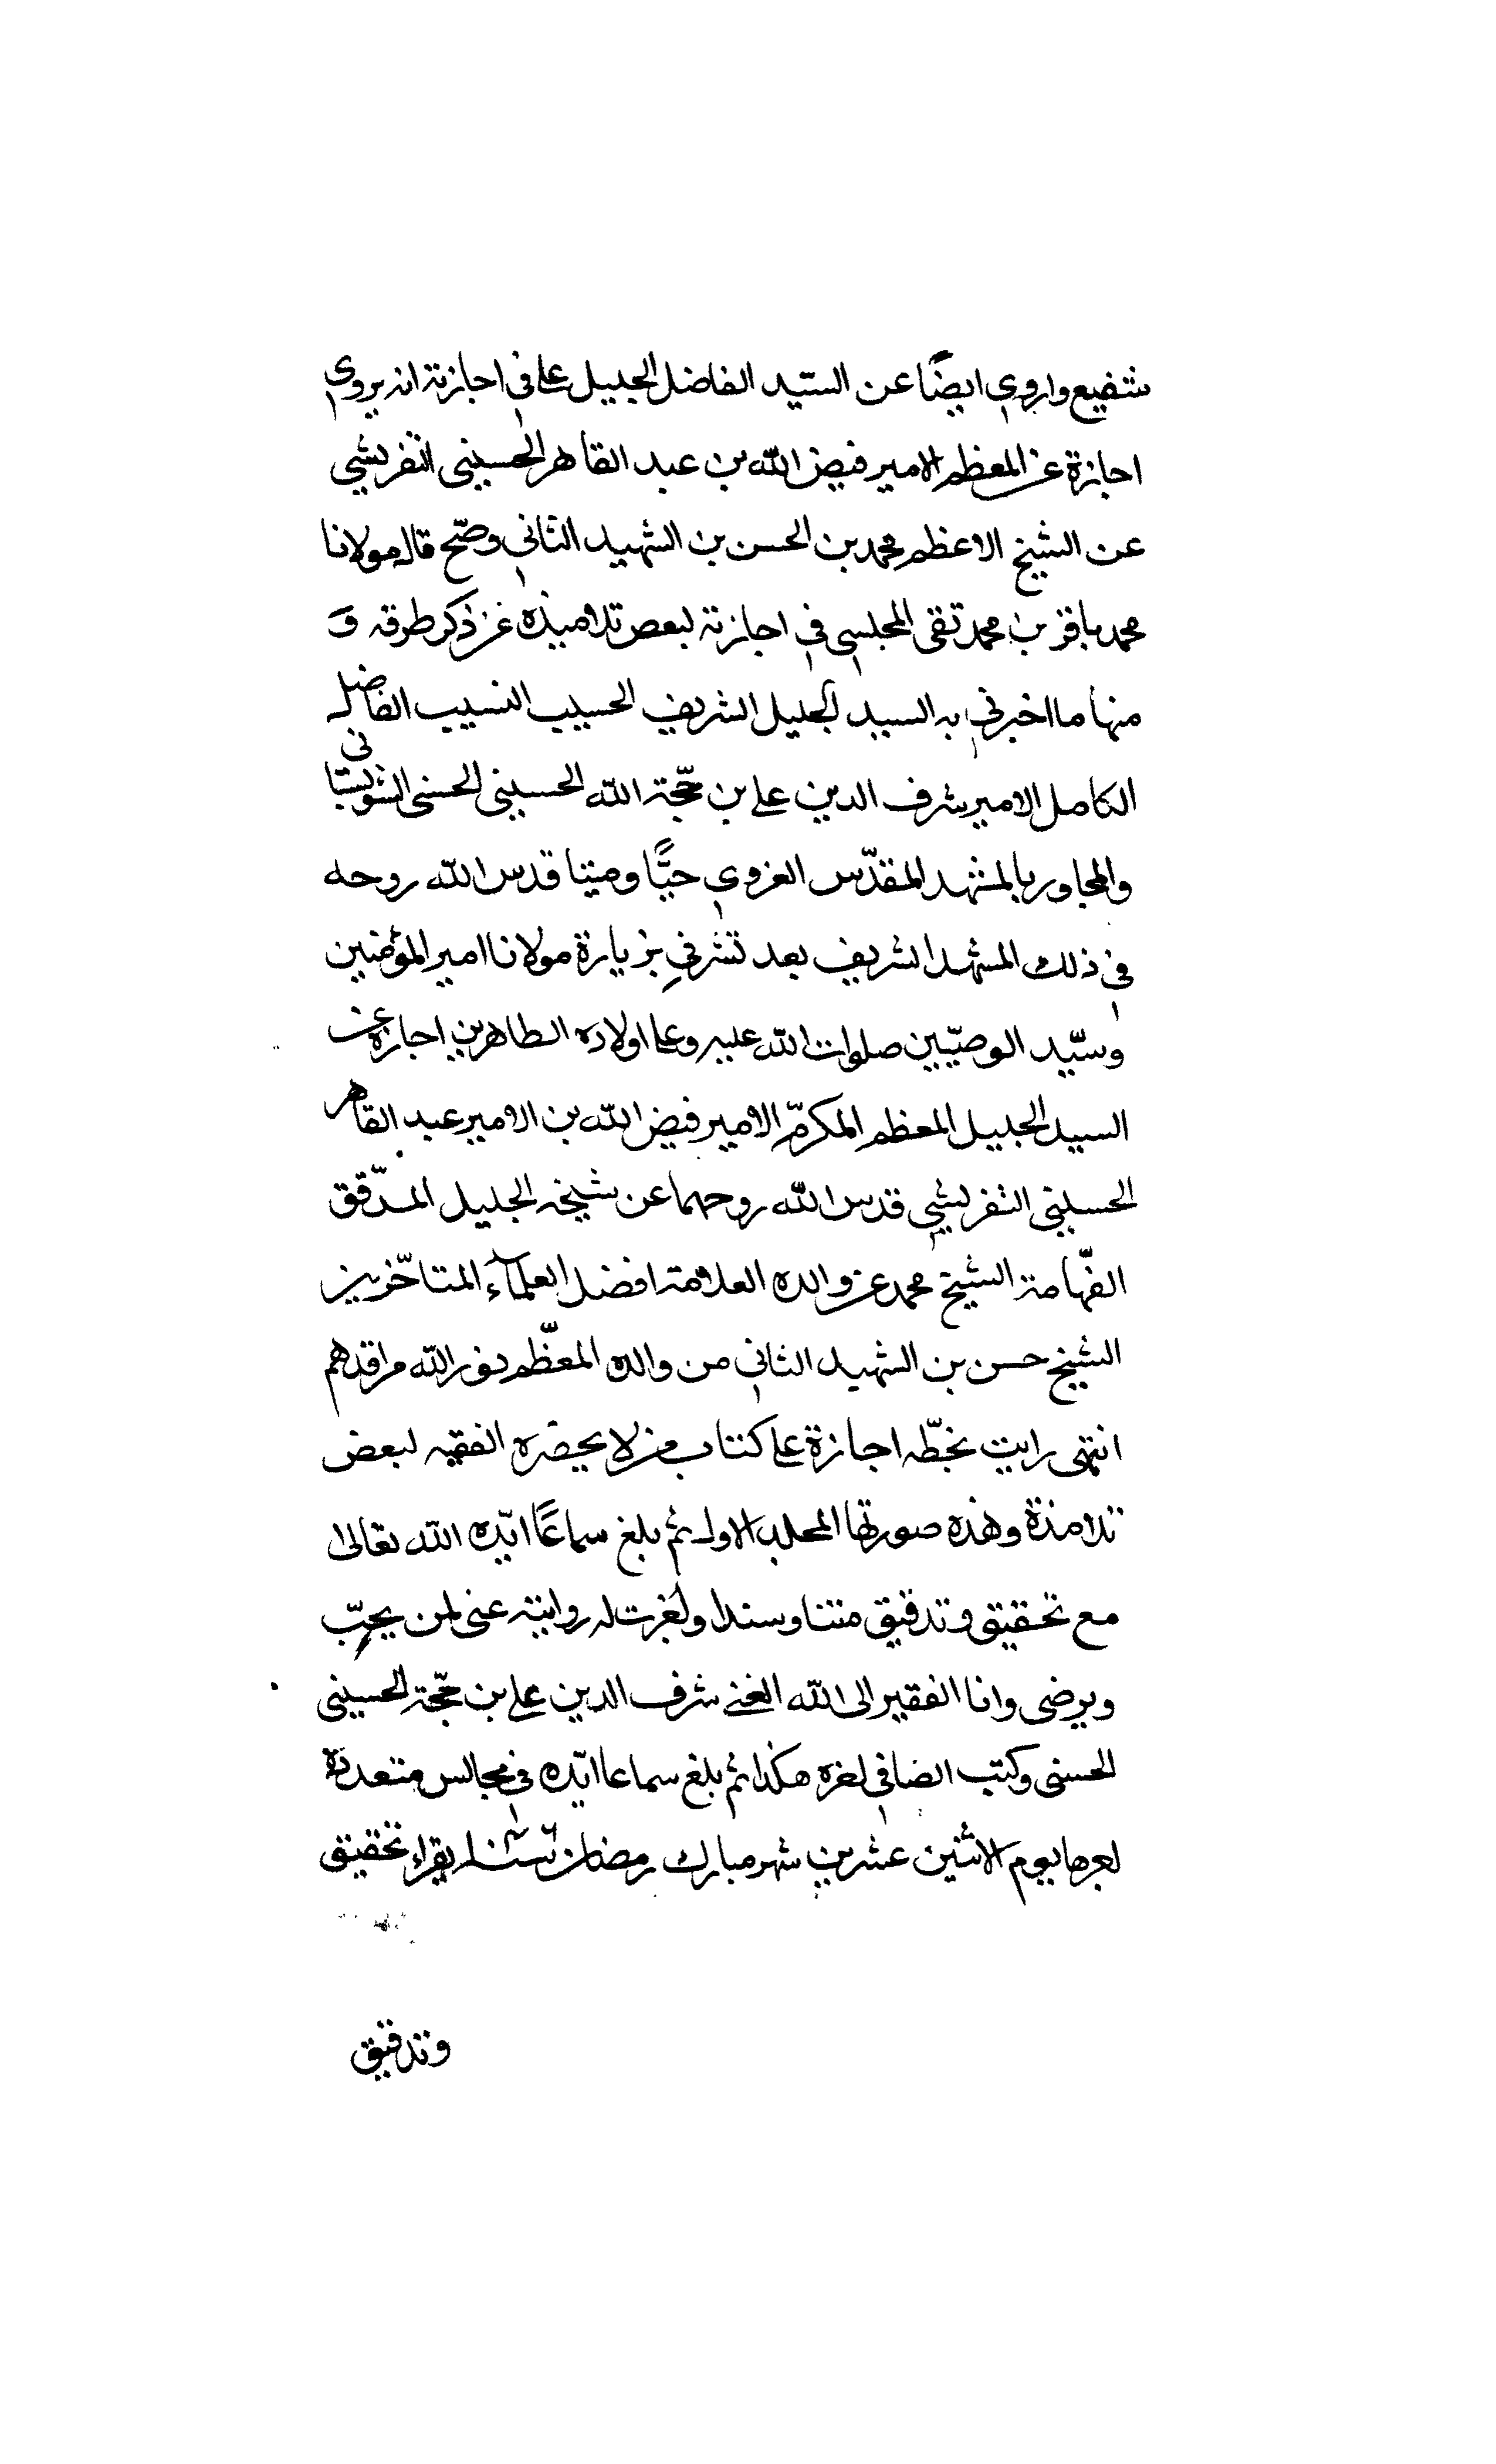 شفيع واروي ايضًا عن السّيد الفاضل الجليل على في اجازته انه يروى
اجازة عن المعظم الامير فيض الله بن عبد القاهر الحسينى التفريشي
عن الشيخ الاعظم محمد بن الحسن بن الشهيد الثاني وصّح قال مولانا
محمد باقر بن محمد تقى المجلسي في اجازته لبعض تلاميذه عن ذكر طرقه و
منها ما اخبرني به السيد الجليل الشريف الحسيب النسيب الفاضل
الكامل الامير شرف الدين على بن حجّة الله الحسينى الحسنى الشولستانى
والمجاور بالمشهد المقدّس الغروي حيًّا وميتا قدس الله روحه
في ذلك المشهد الشريف بعد تشرفي بزيارة مولانا امير المؤمنين
وسيّد الوصيّين صلوات الله عليه وعلى اولاده الطاهرين اجازة عن
السيد الجليل المعظم المكرمّ الامير فيض الله بن الامير عبد القاهر
الحسيني التفريشي قدس الله روحهما عن شيخه الجليل المدّقق
الفهّامة الشيخ محمد عن والده العلامة افضل العلمآء المتاخّرين
الشيخ حسن بن الشهيد الثاني من والده المعظّم نور الله مراقدهم
انتهى رايت بخطّه اجازة على كتاب من لا يحضره الفقيه لبعض
تلامذة وهذه صورتها المجلد الاول ثم بلغ سماعًا ايّده الله تعالى
مع تحقيق وتدقيق متنا وسندا له روايته عنى لمن يحبّ
ويرضى وانا الفقير الى الله الغني شرف الدين على بن حجّة الحسيني
الحسنى وكتب هكذا ثم بلغ سماعا ايّده في مجالس متعددة
يوم الاثنين عشرين شهر مبارك رمضان تحقيق
وتدقيق